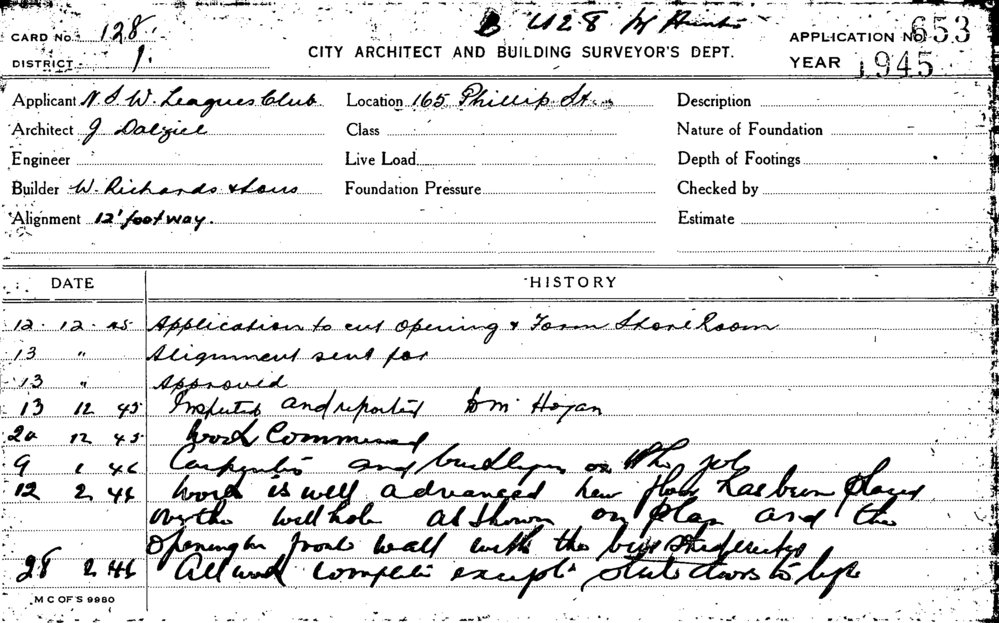 CARD No. 128
DISTRICT 1.
B 428
CITY ARCHITECT AND BUILDING SURVEYOR'S DEPT.
APPLICATION No. 653
YEAR 1945
Applicant N S W. Leagues Club
Location 165 Phillip St.
Description
Architect J Dalziel
Class
Nature of Foundation
Engineer
Live Load
Depth of Footings
Builder W. Richards & Sons
Foundation Pressure
Checked by
Alignment 12' footway.
Estimate
DATE HISTORY
12. 12. 45 Application to cut opening & Form Store Room
13 " Alignment sent for
13 " Approved
13 12 45 Inspected and reported Hogan
20 12 45 Work Commenced
9 1 46 Carpenters and bricklayers on the job
12 2 46 Work is well advanced new floor has been placed
over the well hole as shown on plan and the
opening in front wall with the
28 2 46 All work complete except doors to
M C OF S 9980